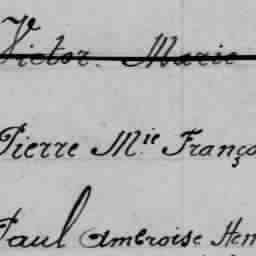 Victor. Marie
Pierre Mie Franço
Paul Ambroise Hen